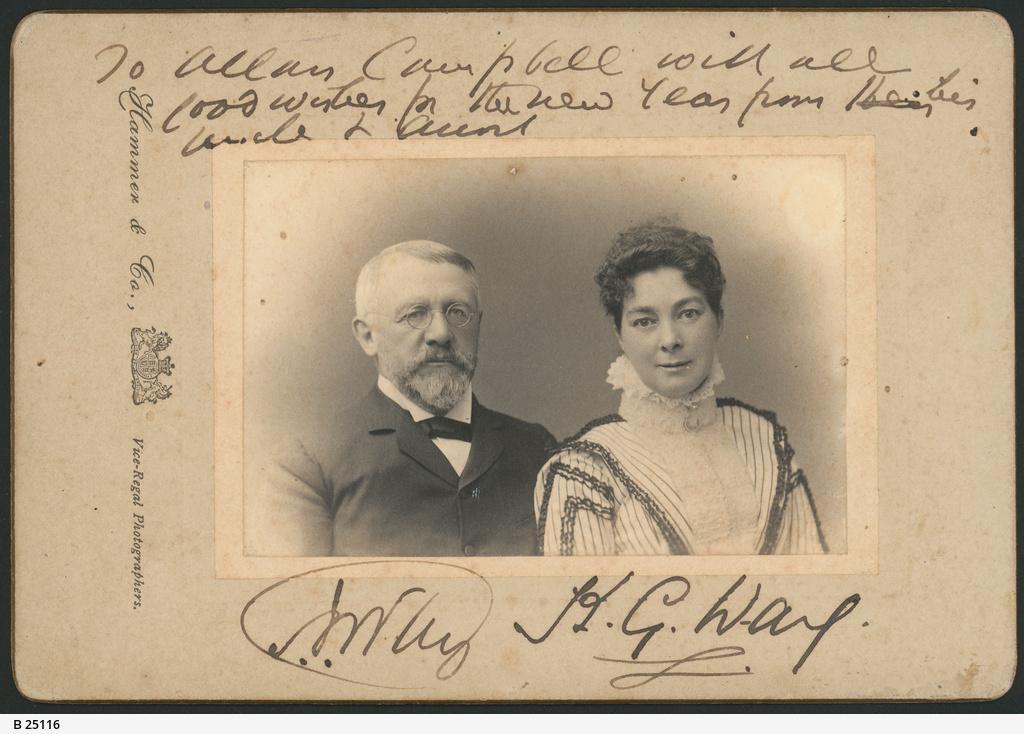 To Allan Campbell with all
good wishes for the new Year from his
uncle & Aunt
Hammer & Co.,
Vice-Regal Photographers.
H. G. Way.
B 25116